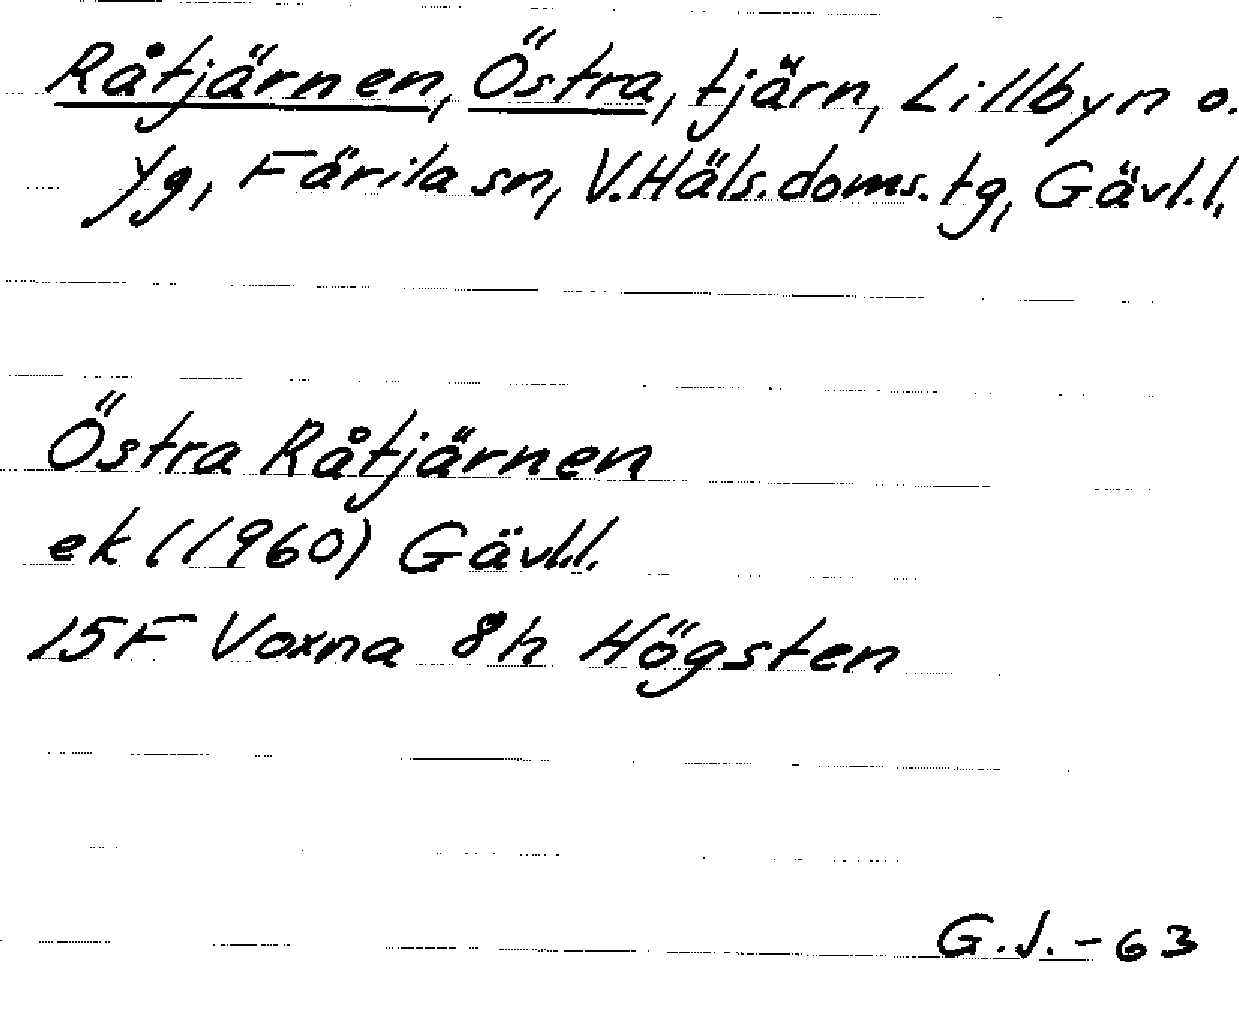 Råtjärnen, Östra, tjärn, Lillbyn o.
Yg, Färila sn, V.Häls.doms.tg, Gävl.l.
Östra Råtjärnen
ek (1960) Gävl.l.
15F Voxna 8h Högsten
G.J.-63